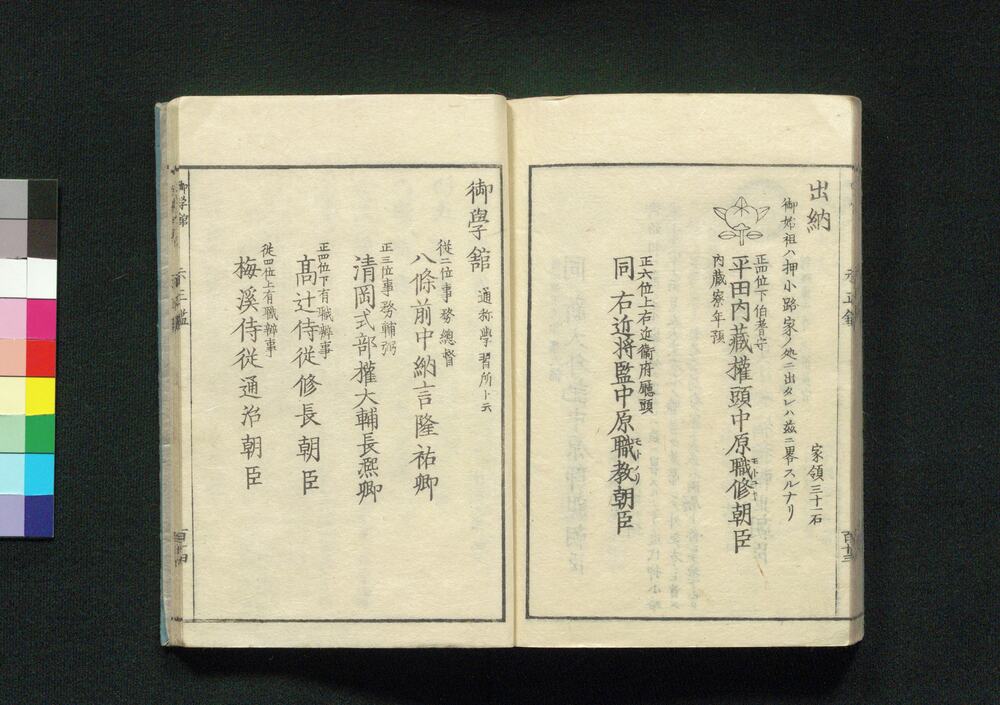 出納
家領三十一石
御姉祖ハ押小路家ノ処ニ出タレハ茲ニ畧スルナリ
正四位下伯耆守
平田内藏權頭中原職修朝臣
内蔵寮年預
正六位上右近衛府廳頭
同右近将監中原職教朝臣
モトノリ
百十三
御學舘
通称學習所ト云
従二位事務總督
八條前中納言隆祐卿
正三位事務輔弼
清岡式部權大輔長煕卿
正四位下有職辧事
髙辻侍従修長朝臣
従四位上有職辧事
梅溪侍従通治朝臣
百十四